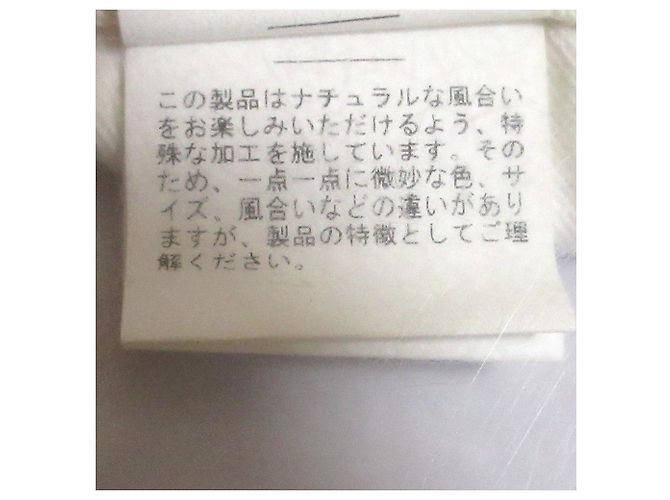 この製品はナチュラルな風合い
をお楽しみいただけるよう、特
殊な加工を施しています。その
ため、一点一点に微妙な色、サ
イズ、風合いなどの違いがあり
ますが、製品の特徴としてご理
解ください。